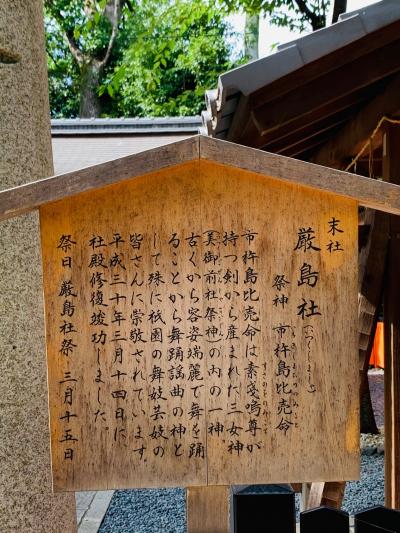 末社
厳島社（いつくしましゃ）
祭神 市杵島比売命
市杵島比売命は素戔嗚尊が
持つ剣から産まれた三女神
（美御前社祭神）の内の一神
古くから容姿端麗で舞を踊
ることから舞踊謡曲の神と
して殊に祇園の舞妓芸妓の
皆さんに崇敬されています。
平成三十年三月十四日に、
社殿修復竣功しました。
祭日 厳島社祭 三月十五日